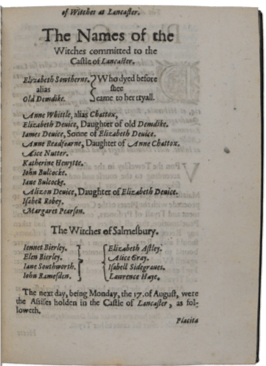 of Witches at Lancaster.
The Names of the
Witches committed to the
Castle of Lancaster.
Elizabeth Sowtherns, Who dyed before
alias shee
Old Demdike. came to her tryall.
Anne Whittle, alias Chattox,
Elizabeth Deuice, Daughter of old Demdike.
Iames Deuice, Sonne of Elizabeth Deuice.
Anne Readfearne, Daughter of Anne Chattox.
Alice Nutter.
Katherine Hewytte.
Iohn Bulcocke.
Iane Bulcocke.
Alizon Deuice, Daughter of Elizabeth Deuice.
Isabell Robey.
Margaret Pearson.
The Witches of Salmesbury.
Iennet Bierley. Elizabeth Astley.
Elen Bierley. Alice Gray.
Iane Southworth. Isabell Sidegraues.
Iohn Ramesden. Lawrence Haye.
The next day, being Monday, the 17. of August, were
the Assises holden in the Castle of Lancaster, as fol-
loweth.
Placita